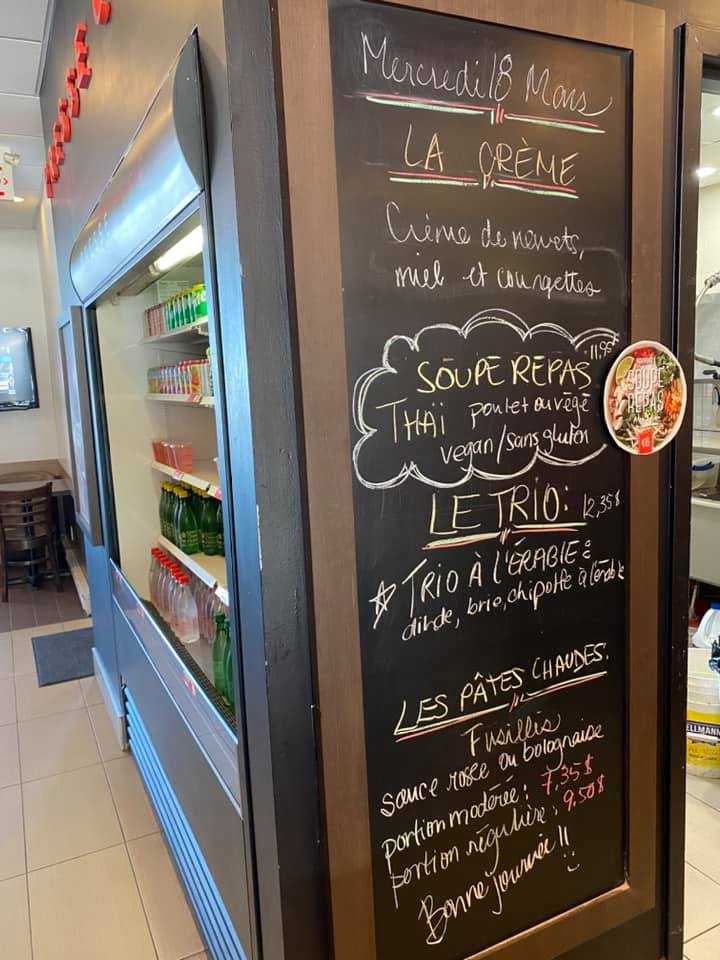 Mercredi 18 Mars
LA CRÈME
Crème de navets,
miel et courgettes
11,95$
SOUPE REPAS
THAÏ poulet ou végé
vegan/sans gluten
SOUPE
REPAS
LE TRIO: 12,35$
TRIO À L'ÉRABLE:
dinde, brie, chipotle à l'érable
LES PÂTES CHAUDES.
Fusillis
sauce rosée ou bolognaise
portion modérée: 7,35$
portion régulière: 9,50$
Bonne journée!!